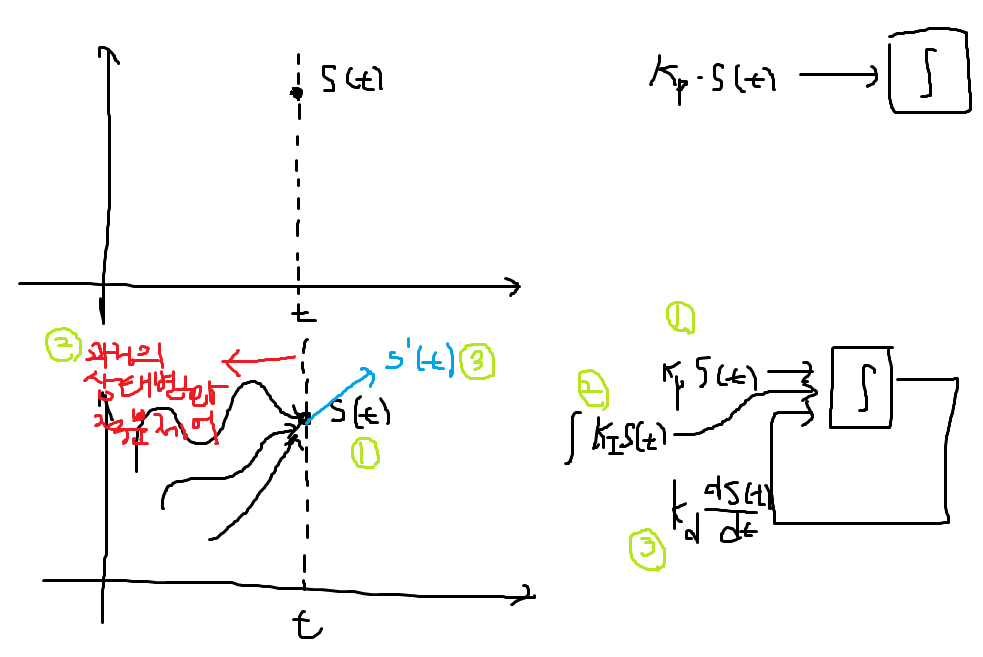 S(t)
t
Kp · S(t) → ∫
② 과거의
상태변화
적분제어
S'(t) ③
S(t)
①
t
①
Kp S(t) → ∫
②
∫ K_I S(t)
③ K_d dS(t)/dt